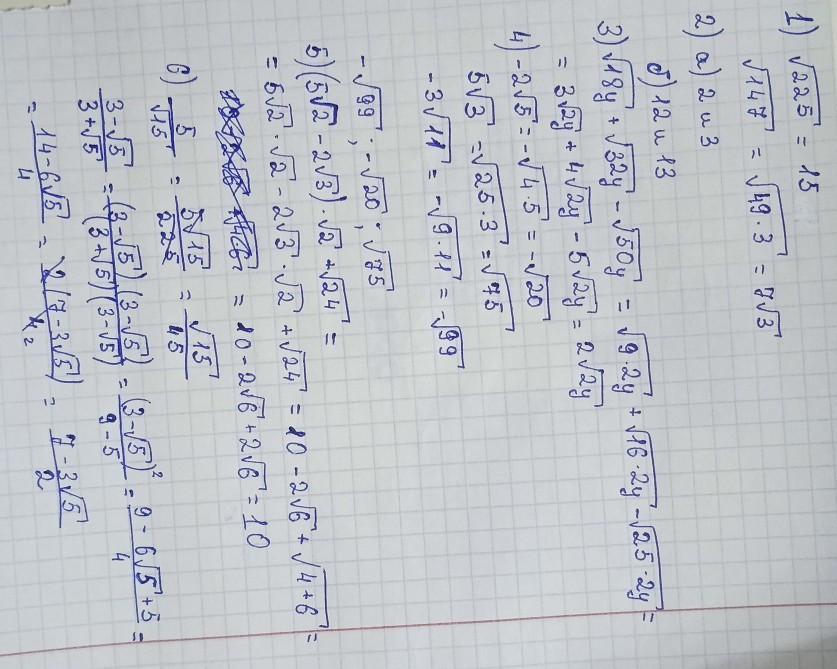 1) √225 = 15
√147 = √49·3 = 7√3
2) а) 2 и 3
б) 12 и 13
3) √18y + √32y - √50y = √9·2y + √16·2y - √25·2y =
= 3√2y + 4√2y - 5√2y = 2√2y
4) -2√5 = -√4·5 = -√20
5√3 = √25·3 = √75
-3√11 = -√9·11 = -√99
-√99; -√20; √75
5) (5√2 - 2√3)·√2 + √24 =
= 5√2·√2 - 2√3·√2 + √24 = 10 - 2√6 + √4+6 =
= 10 - 2√6 + 2√6 = 10
6) 5/√15 = 5√15/225 = √15/45
3-√5/3+√5 = (3-√5)(3-√5)/(3+√5)(3-√5) = (3-√5)²/9-5 = 9-6√5+5/4 =
= 14-6√5/4 = 2(7-3√5)/4 2 = 7-3√5/2